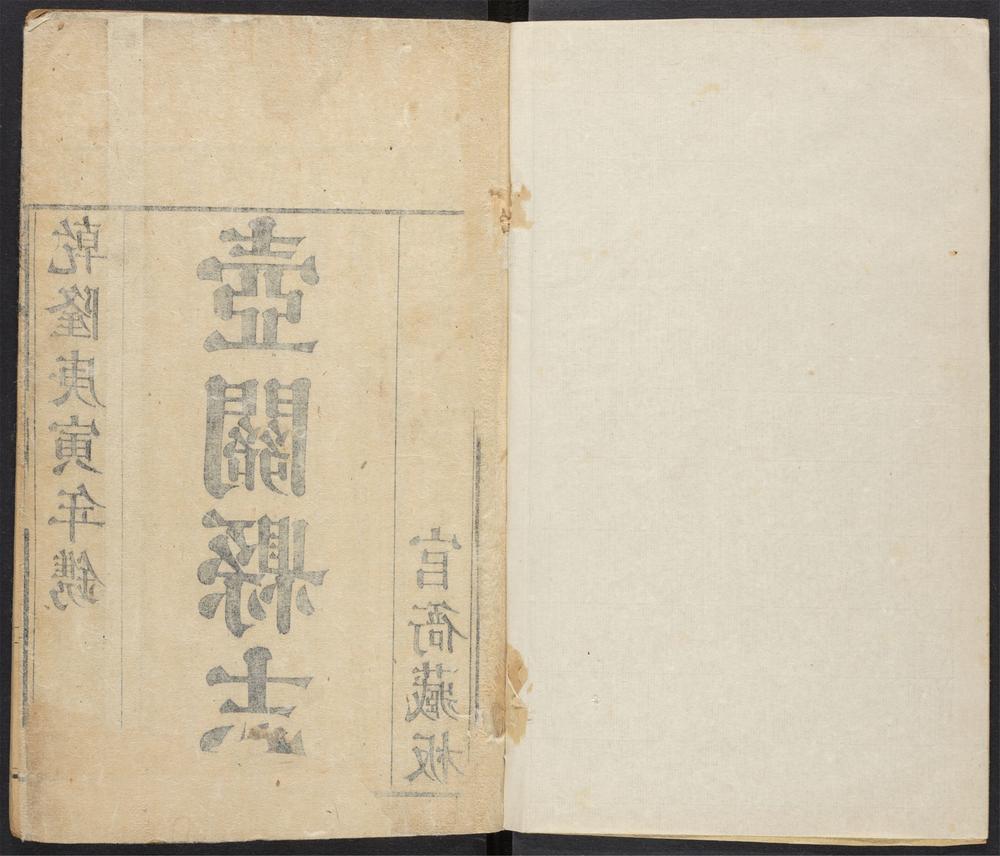 乾隆庚寅年鐫
壺關縣志
官衙藏板